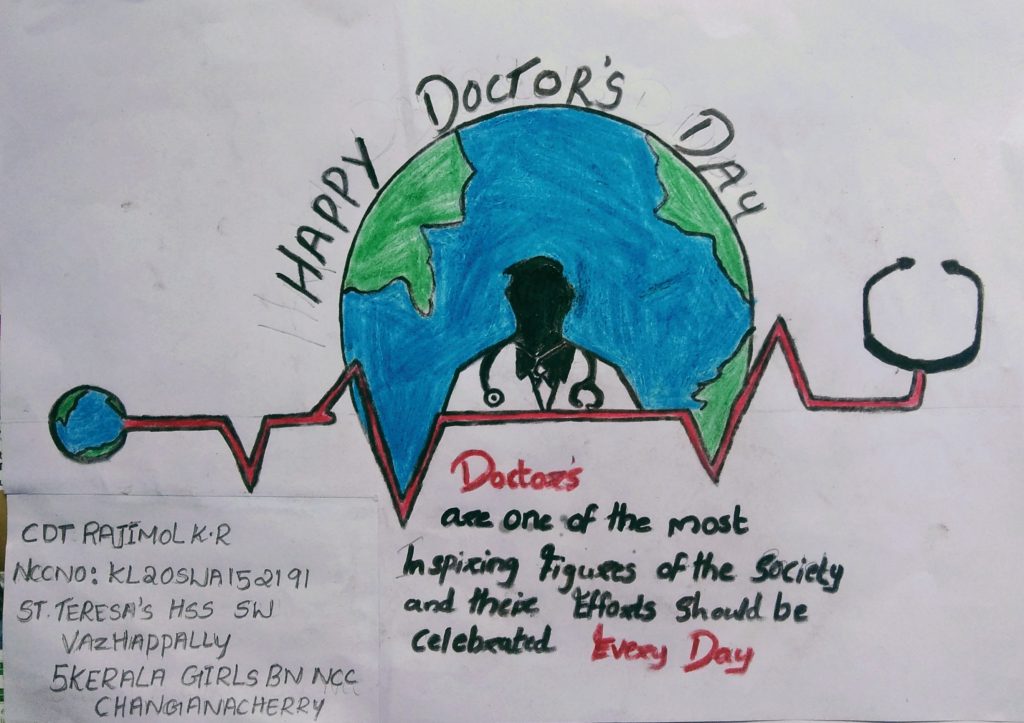 HAPPY DOCTOR'S DAY
Doctor's
are one of the most
Inspiring Figures of the Society
and their Efforts should be
celebrated Every Day
CDT RAJIMOL K.R
NCCNO: KL20SWA152191
ST. TERESA'S HSS SW
VAZHAPPALLY
5KERALA GIRLS BN NCC
CHANGANACHERRY